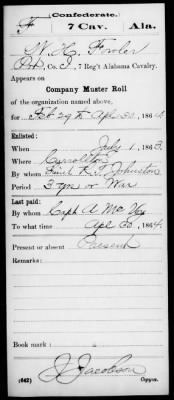 Confederate.
F 7 Cav. Ala.
W. C. Fowler
Pvt, Co. I, 7 Reg't Alabama Cavalry.
Appears on
Company Muster Roll
of the organization named above,
for Feb 29 to Apr 30, 1864.
Enlisted:
When July 1, 1863.
Where Carrollton
By whom Lieut Johnston
Period 3 yrs or War
Last paid:
By whom Capt A. Mc
To what time Apr 30, 1864.
Present or absent Present
Remarks:
Book mark:
J. Jacobson
(642) Copyist.